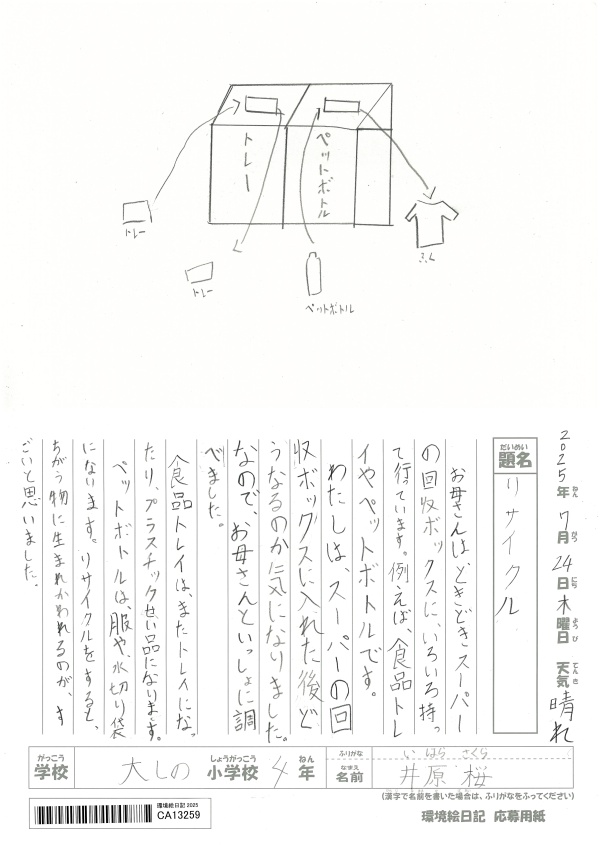 トレー
ペットボトル
トレー
トレー
ペットボトル
ふく
2025年ねん 7月がつ 24日にち 木曜日ようび 天気てんき 晴れ
だいめい
題名
リサイクル
お母さんはときどきスーパー
の回収ボックスに、いろいろ持っ
て行っています。例えば、食品トレ
イやペットボトルです。
わたしは、スーパーの回
収ボックスに入れた後ど
うなるのか気になりました。
なので、お母さんといっしょに調
べました。
食品トレイは、またトレイになっ
たり、プラスチックせい品になります。
ペットボトルは、服や、水切り袋
になります。リサイクルをすると、
ちがう物に生まれかわれるのが、す
ごいと思いました。
がっこう
学校
大しの
しょうがっこう
小学校
4
ねん
年
ふりがな
い はら さくら
なまえ
名前
井原 桜
(漢字で名前を書いた場合は、ふりがなをふってください)
環境絵日記 応募用紙
環境絵日記 2025
CA13259